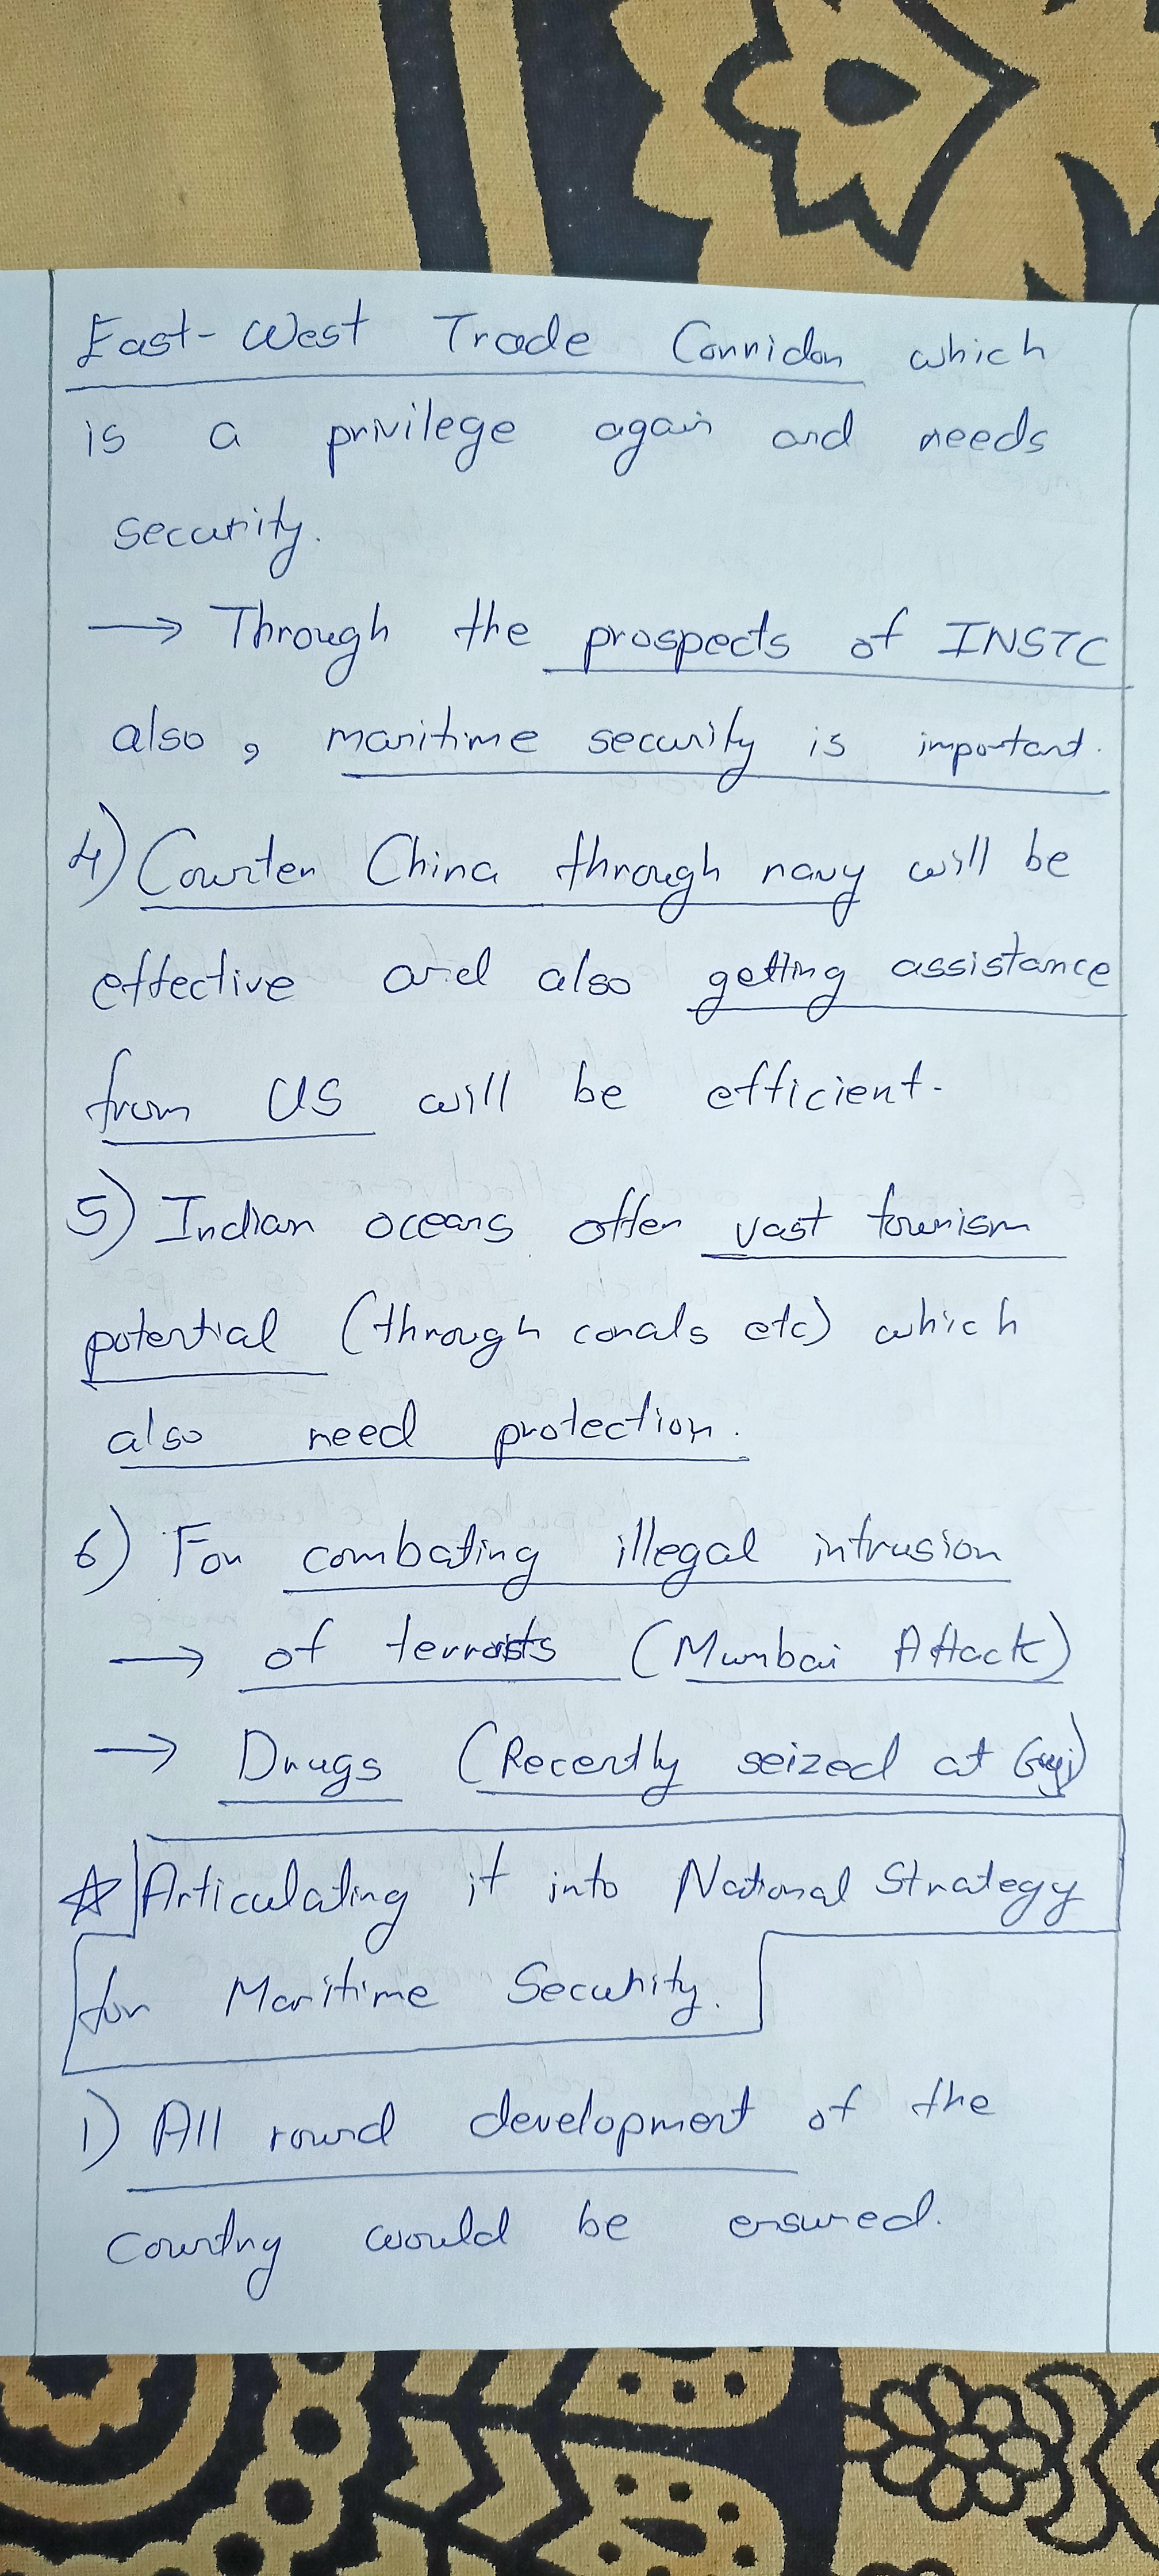 East-West Trade Corridor which
is a privilege again and needs
security.
→ Through the prospects of INSTC
also, maritime security is important.
4) Counter China through navy will be
effective and also getting assistance
from US will be efficient.
5) Indian oceans offer vast tourism
potential (through corals etc) which
also need protection.
6) For combating illegal intrusion
→ of terrorists (Mumbai Attack)
→ Drugs (Recently seized at Guj)
☆ Articulating it into National Strategy
for Maritime Security.
1) All round development of the
country would be ensured.